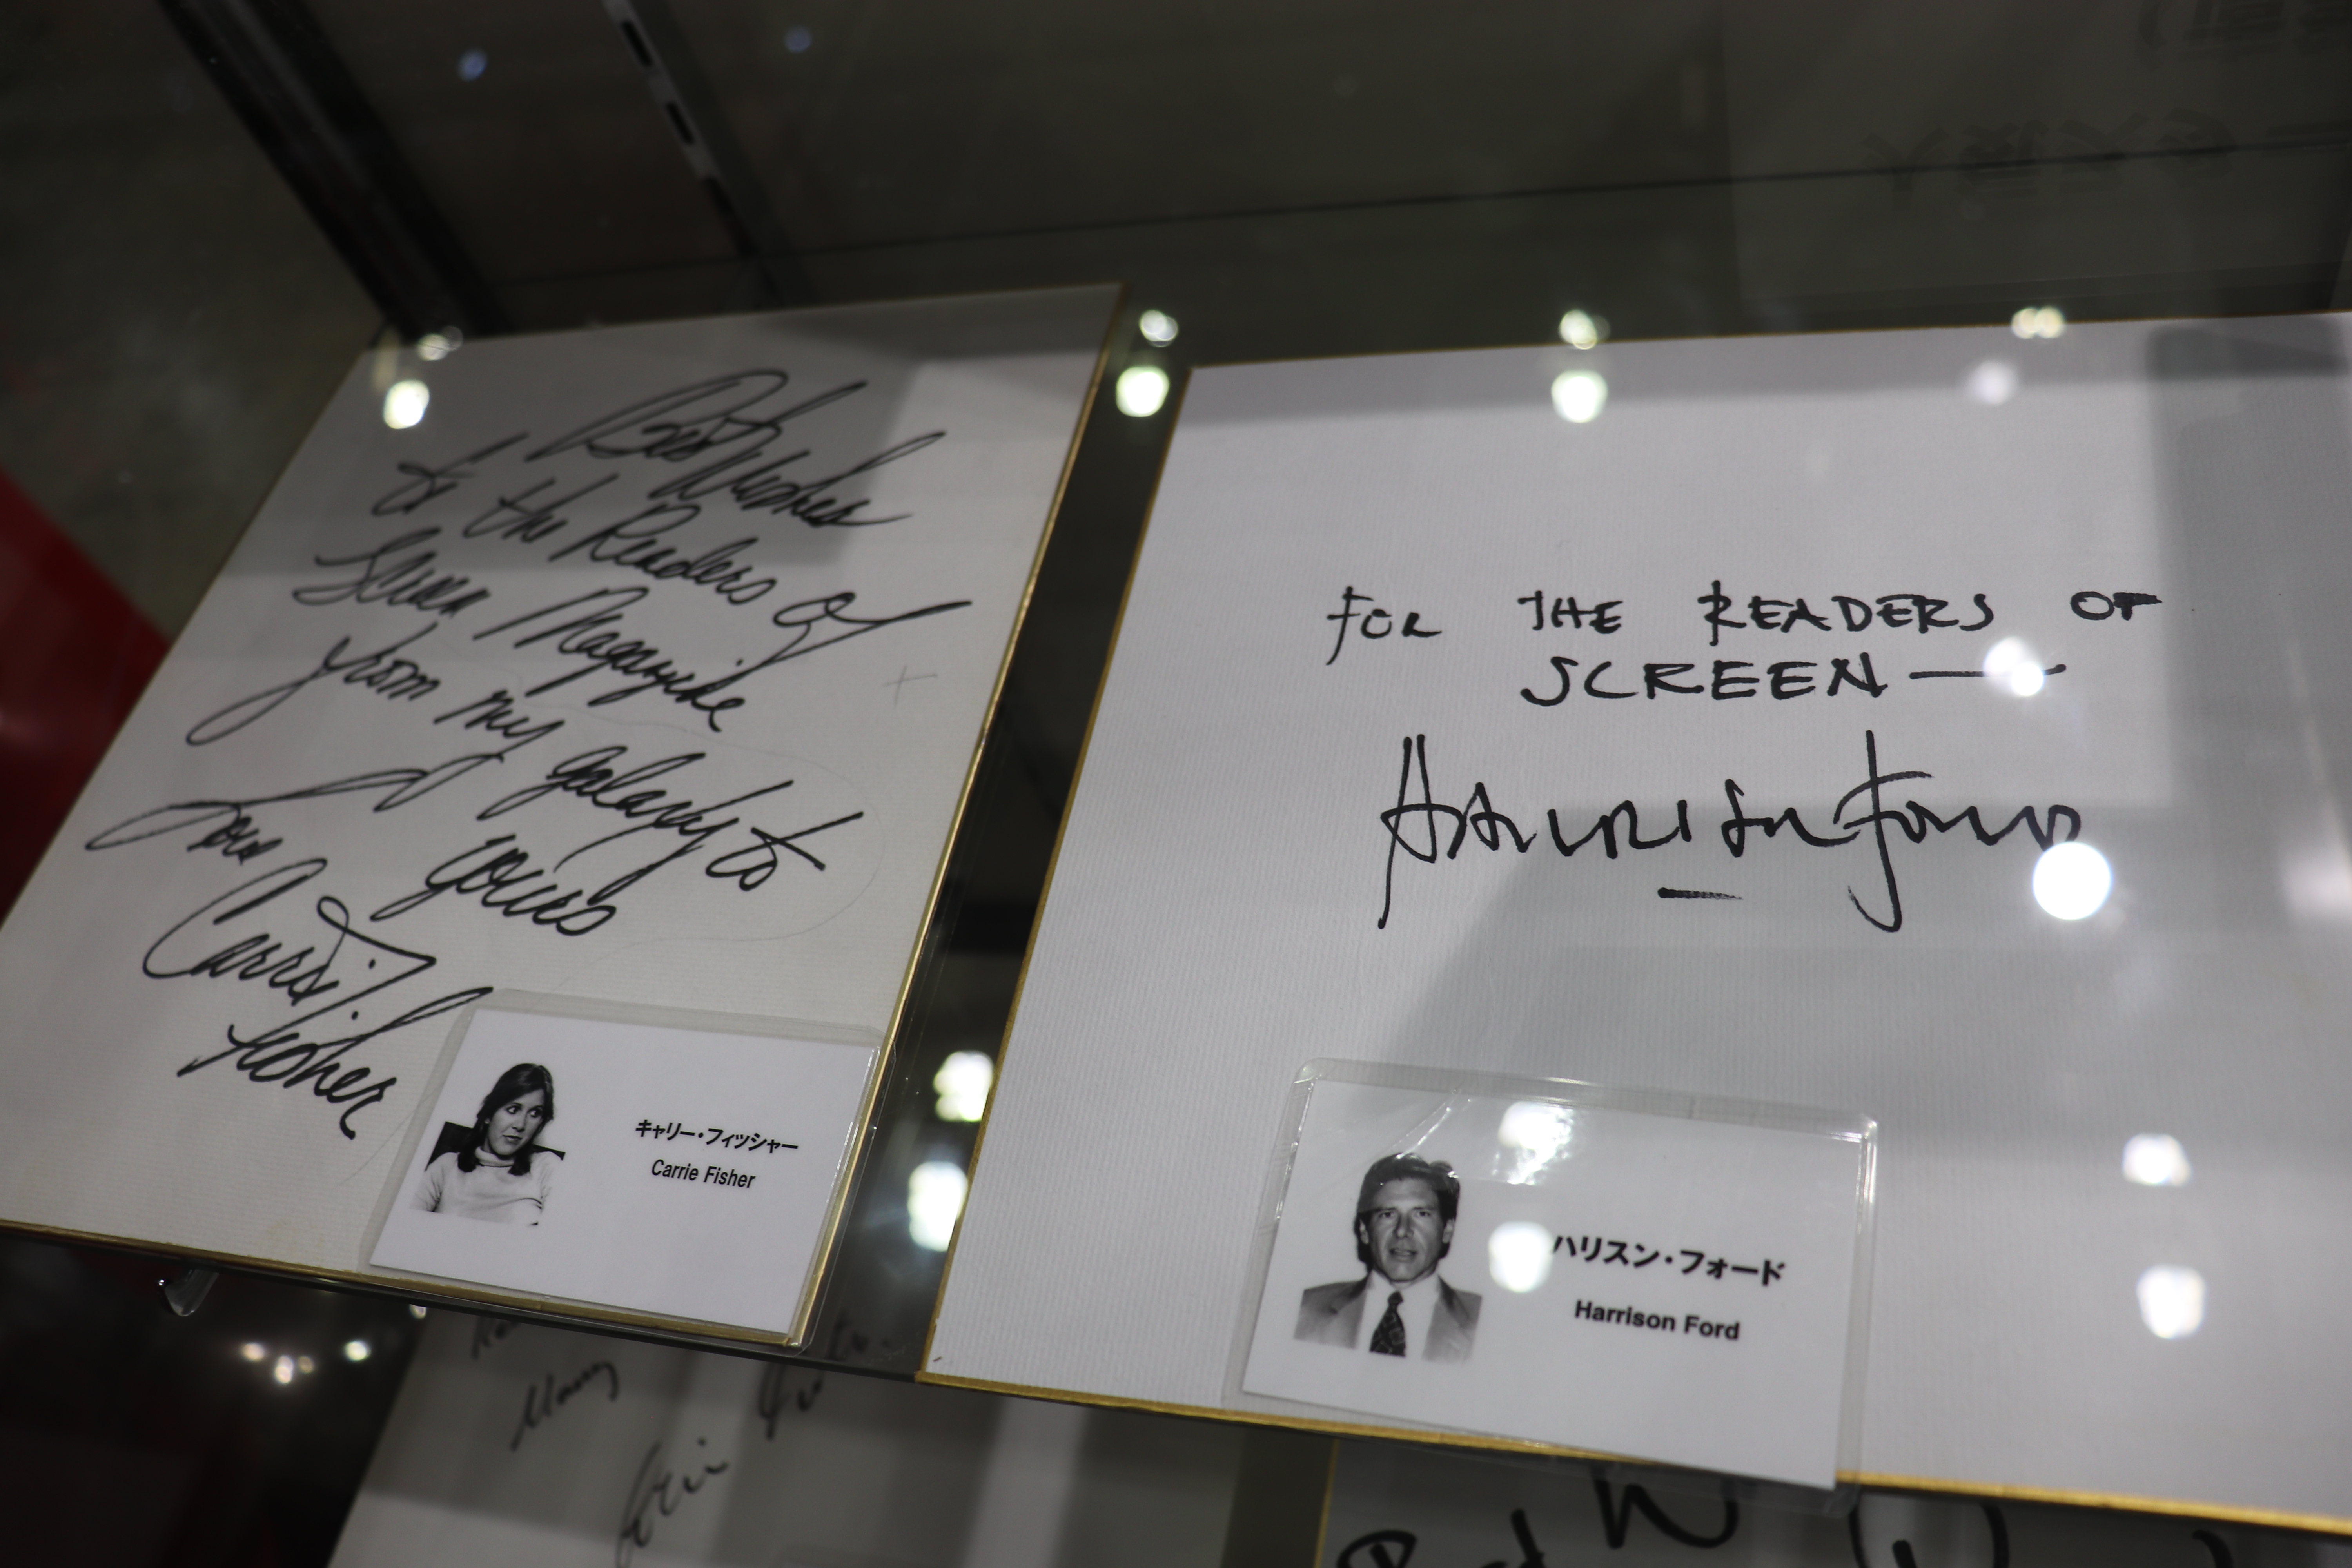 Best Wishes
to the Readers of
Screen Magazine
from my galaxy to
yours
Love
Carrie
Fisher
キャリー・フィッシャー
Carrie Fisher
FOR THE READERS OF
SCREEN —
Harrison Ford
ハリスン・フォード
Harrison Ford